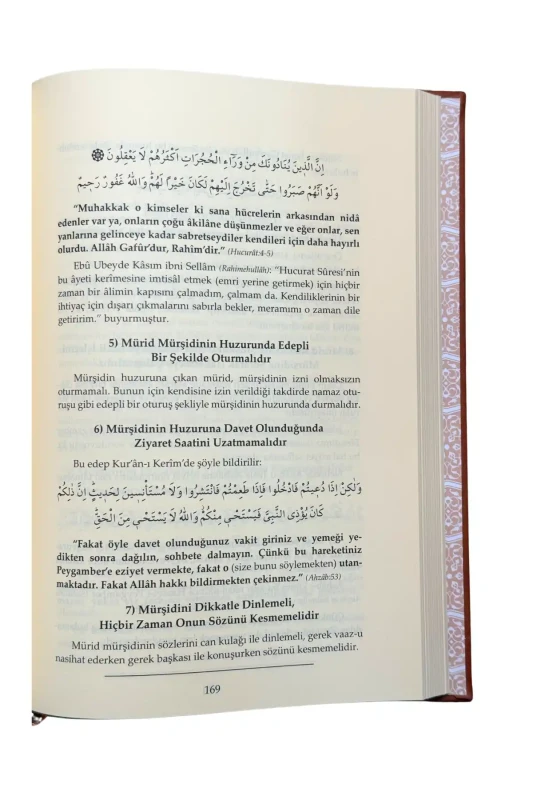 اِنَّ الَّذ۪ينَ يُنَادُونَكَ مِنْ وَرَٓاءِ الْحُجُرَاتِ اَكْثَرُهُمْ لَا يَعْقِلُونَ ۞
وَلَوْ اَنَّهُمْ صَبَرُوا حَتّٰى تَخْرُجَ اِلَيْهِمْ لَكَانَ خَيْرًا لَهُمْۜ وَاللّٰهُ غَفُورٌ رَح۪يمٌ
“Muhakkak o kimseler ki sana hücrelerin arkasından nidâ
edenler var ya, onların çoğu âkilâne düşünmezler ve eğer onlar, sen
yanlarına gelinceye kadar sabretseydiler kendileri için daha hayırlı
olurdu. Allâh Gafûr’dur, Rahîm’dir.” (Hucurât:4-5)
Ebû Ubeyde Kâsım ibni Sellâm (Rahimehullâh): “Hucurat Sûresi’nin
bu âyeti kerîmesine imtisâl etmek (emri yerine getirmek) için hiçbir
zaman bir âlimin kapısını çalmadım, çalmam da. Kendiliklerinin bir
ihtiyaç için dışarı çıkmalarını sabırla bekler, meramımı o zaman dile
getiririm.” buyurmuştur.
5) Mürid Mürşidinin Huzurunda Edepli
Bir Şekilde Oturmalıdır
Mürşidin huzuruna çıkan mürid, mürşidinin izni olmaksızın
oturmamalı. Bunun için kendisine izin verildiği takdirde namaz otu-
ruşu gibi edepli bir oturuş şekliyle mürşidinin huzurunda durmalıdır.
6) Mürşidinin Huzuruna Davet Olunduğunda
Ziyaret Saatini Uzatmamalıdır
Bu edep Kur’ân-ı Kerîm’de şöyle bildirilir:
وَلٰكِنْ اِذَا دُع۪يتُمْ فَادْخُلُوا فَاِذَا طَعِمْتُمْ فَانْتَشِرُوا وَلَا مُسْتَأْنِس۪ينَ لِحَد۪يثٍۜ اِنَّ ذٰلِكُمْ
كَانَ يُؤْذِى النَّبِىَّ فَيَسْتَحْي۪ مِنْكُمْۘ وَاللّٰهُ لَا يَسْتَحْي۪ مِنَ الْحَقِّۜ
“Fakat öyle davet olunduğunuz vakit giriniz ve yemeği ye-
dikten sonra dağılın, sohbete dalmayın. Çünkü bu hareketiniz
Peygamber’e eziyet vermekte, fakat o (size bunu söylemekten) utan-
maktadır. Fakat Allâh hakkı bildirmekten çekinmez.” (Ahzâb:53)
7) Mürşidini Dikkatle Dinlemeli,
Hiçbir Zaman Onun Sözünü Kesmemelidir
Mürid mürşidinin sözlerini can kulağı ile dinlemeli, gerek vaaz-u
nasihat ederken gerek başkası ile konuşurken sözünü kesmemelidir.
169